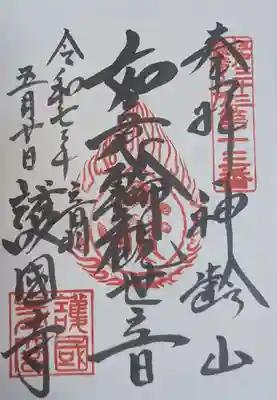 第十三番
奉拝 神齢山
如意輪観世音
令和七年
五月廿日
護國寺